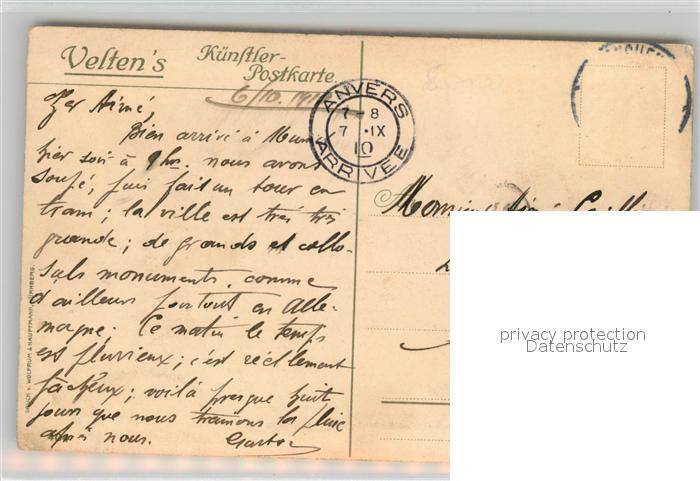 Velten's Künstler-
Postkarte.
6/10. 191
Cher Aimé,
Bien arrivé à Mun
hier soir à 9 hrs. nous avons
soupé, puis fait un tour en
tram; la ville est très très
grande; de grands et collo-
sals monuments, comme
d'ailleurs partout en Alle-
magne. Ce matin le temps
est pluvieux; c'est réellement
fâcheux; voilà presque huit
jours que nous traînons la pluie
après nous. Gaston
ANVERS
7-8
7 · IX
10
ARRIVÉE
Monsieur Aimé
DRUCK V. WOLFRUM & HAUPTMANN, NÜRNBERG.
privacy protection
Datenschutz